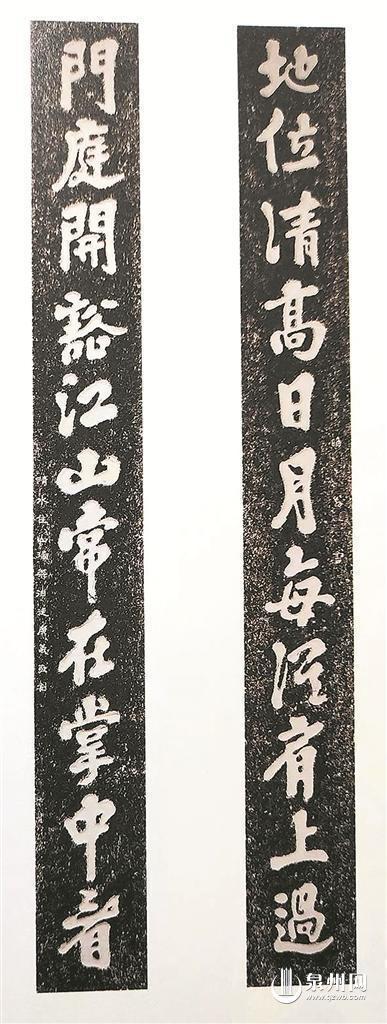 地位清高日月每從肩上過
門庭開豁江山常在掌中看
泉州网
www.qzwb.com